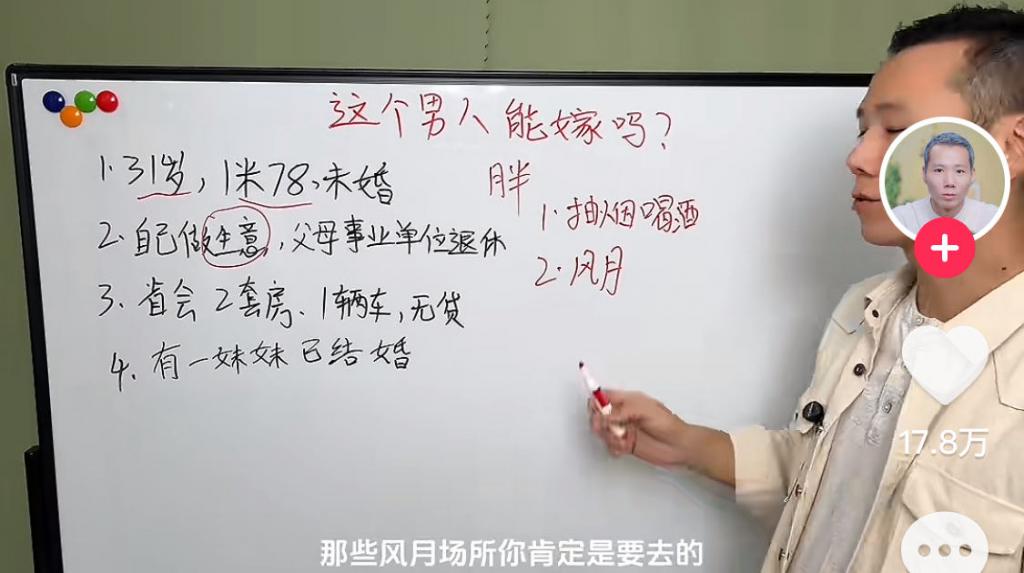 这个男人能嫁吗?
1.31岁,1米78、未婚
2.自己做生意,父母事业单位退休
3.省会2套房、1辆车,无贷
4.有一妹妹已结婚
胖
1.抽烟喝酒
2.风月
17.8万
那些风月场所你肯定是要去的